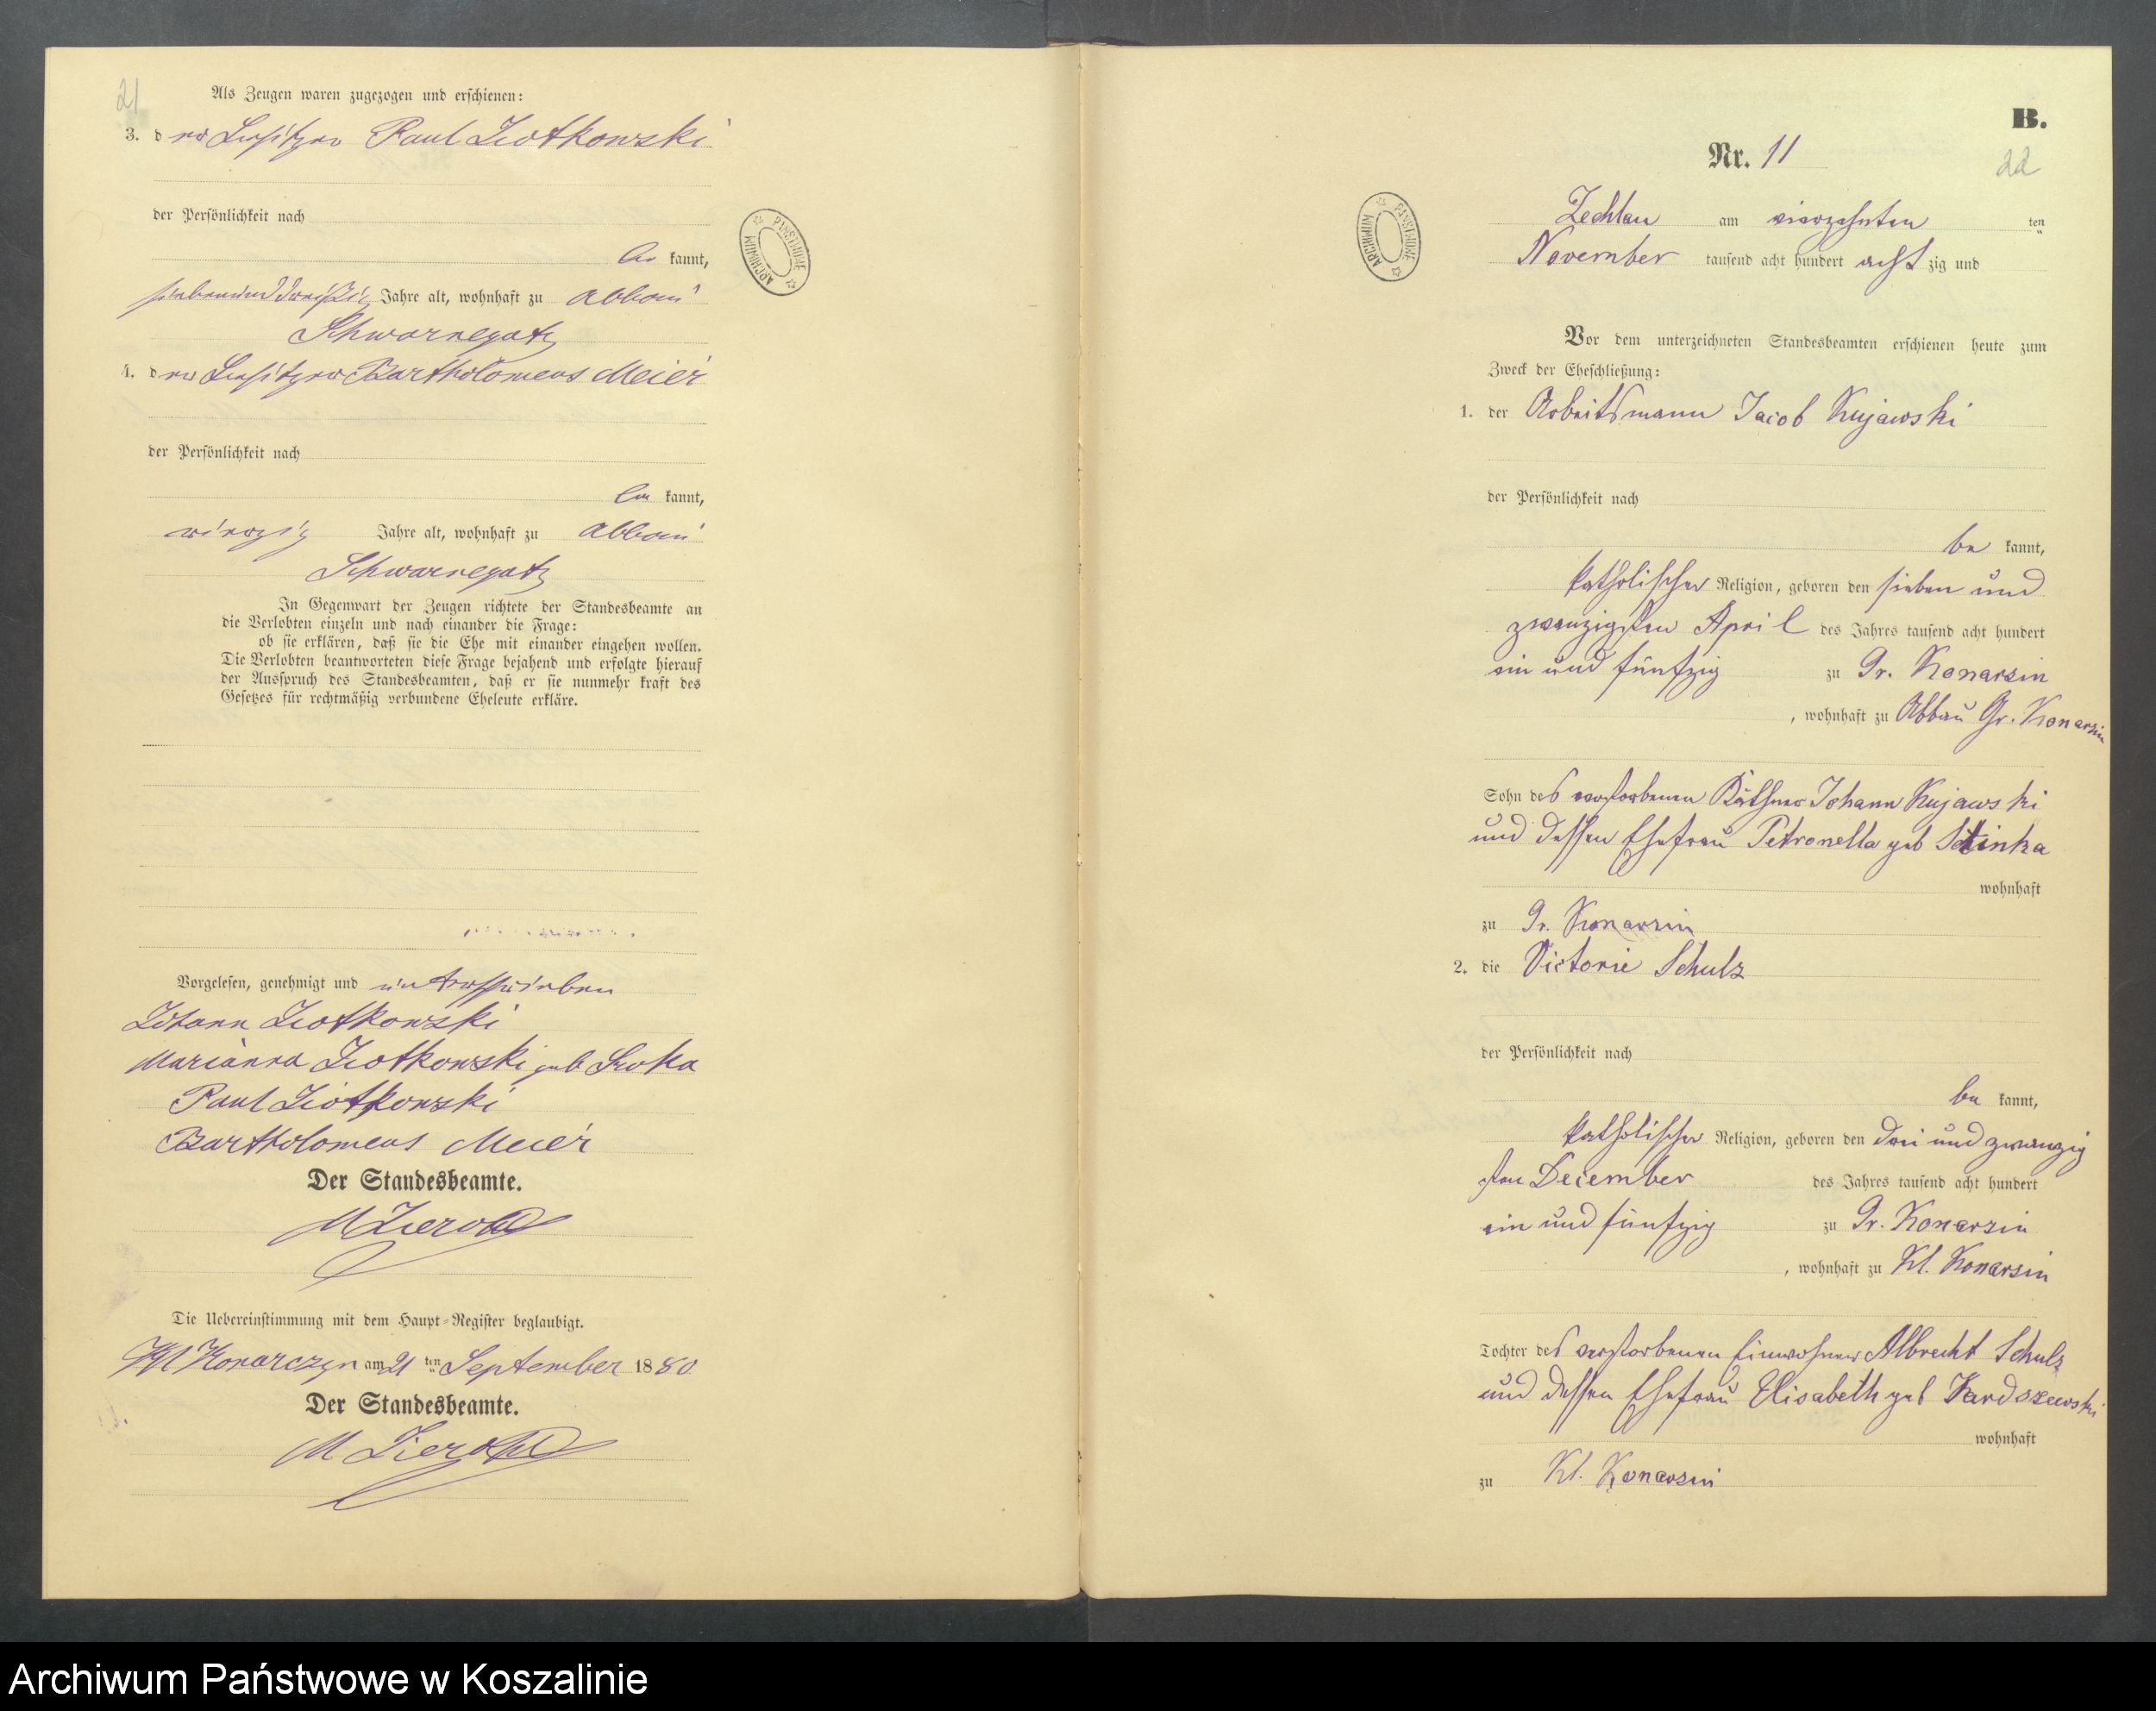 21
Als Zeugen waren zugezogen und erschienen:
3. der Besitzer Paul Ziotkowski
der Persönlichkeit nach
be kannt,
siebenunddreißig Jahre alt, wohnhaft zu Abbau
Schwarnegatz
4. der Besitzer Bartholomeus Meier
der Persönlichkeit nach
be kannt,
vierzig Jahre alt, wohnhaft zu Abbau
Schwarnegatz
In Gegenwart der Zeugen richtete der Standesbeamte an
die Verlobten einzeln und nach einander die Frage:
ob sie erklären, daß sie die Ehe mit einander eingehen wollen.
Die Verlobten beantworteten diese Frage bejahend und erfolgte hierauf
der Ausspruch des Standesbeamten, daß er sie nunmehr kraft des
Gesetzes für rechtmäßig verbundene Eheleute erkläre.
Vorgelesen, genehmigt und unterschrieben
Johann Ziotkowski
Marianna Ziotkowski geb
Paul Ziotkowski
Bartholomeus Meier
Der Standesbeamte.
Die Uebereinstimmung mit dem Haupt-Register beglaubigt.
Konarczyn am 21 ten September 1880
Der Standesbeamte.
ARCHIWUM PAŃSTWOWE
B.
Nr. 11
22
Zechlau am vierzehnten ten
November tausend acht hundert acht zig und
ARCHIWUM PAŃSTWOWE
Vor dem unterzeichneten Standesbeamten erschienen heute zum
Zweck der Eheschließung:
1. der Arbeitsmann Jacob Kujawski
der Persönlichkeit nach
be kannt,
katholischer Religion, geboren den sieben und
zwanzigsten April des Jahres tausend acht hundert
ein und fünfzig zu Gr. Konarzin
, wohnhaft zu Abbau Gr. Konarzin
Sohn des verstorbenen Käthner Johann Kujawski
und dessen Ehefrau Petronella geb
wohnhaft
zu Gr. Konarzin
2. die Victorie Schulz
der Persönlichkeit nach
be kannt,
katholischer Religion, geboren den drei und zwanzig
sten December des Jahres tausend acht hundert
ein und fünfzig zu Gr. Konarzin
, wohnhaft zu Kl. Konarzin
Tochter des verstorbenen Einwohner Albrecht Schulz
und dessen Ehefrau Elisabeth geb
wohnhaft
zu Kl. Konarzin
Archiwum Państwowe w Koszalinie